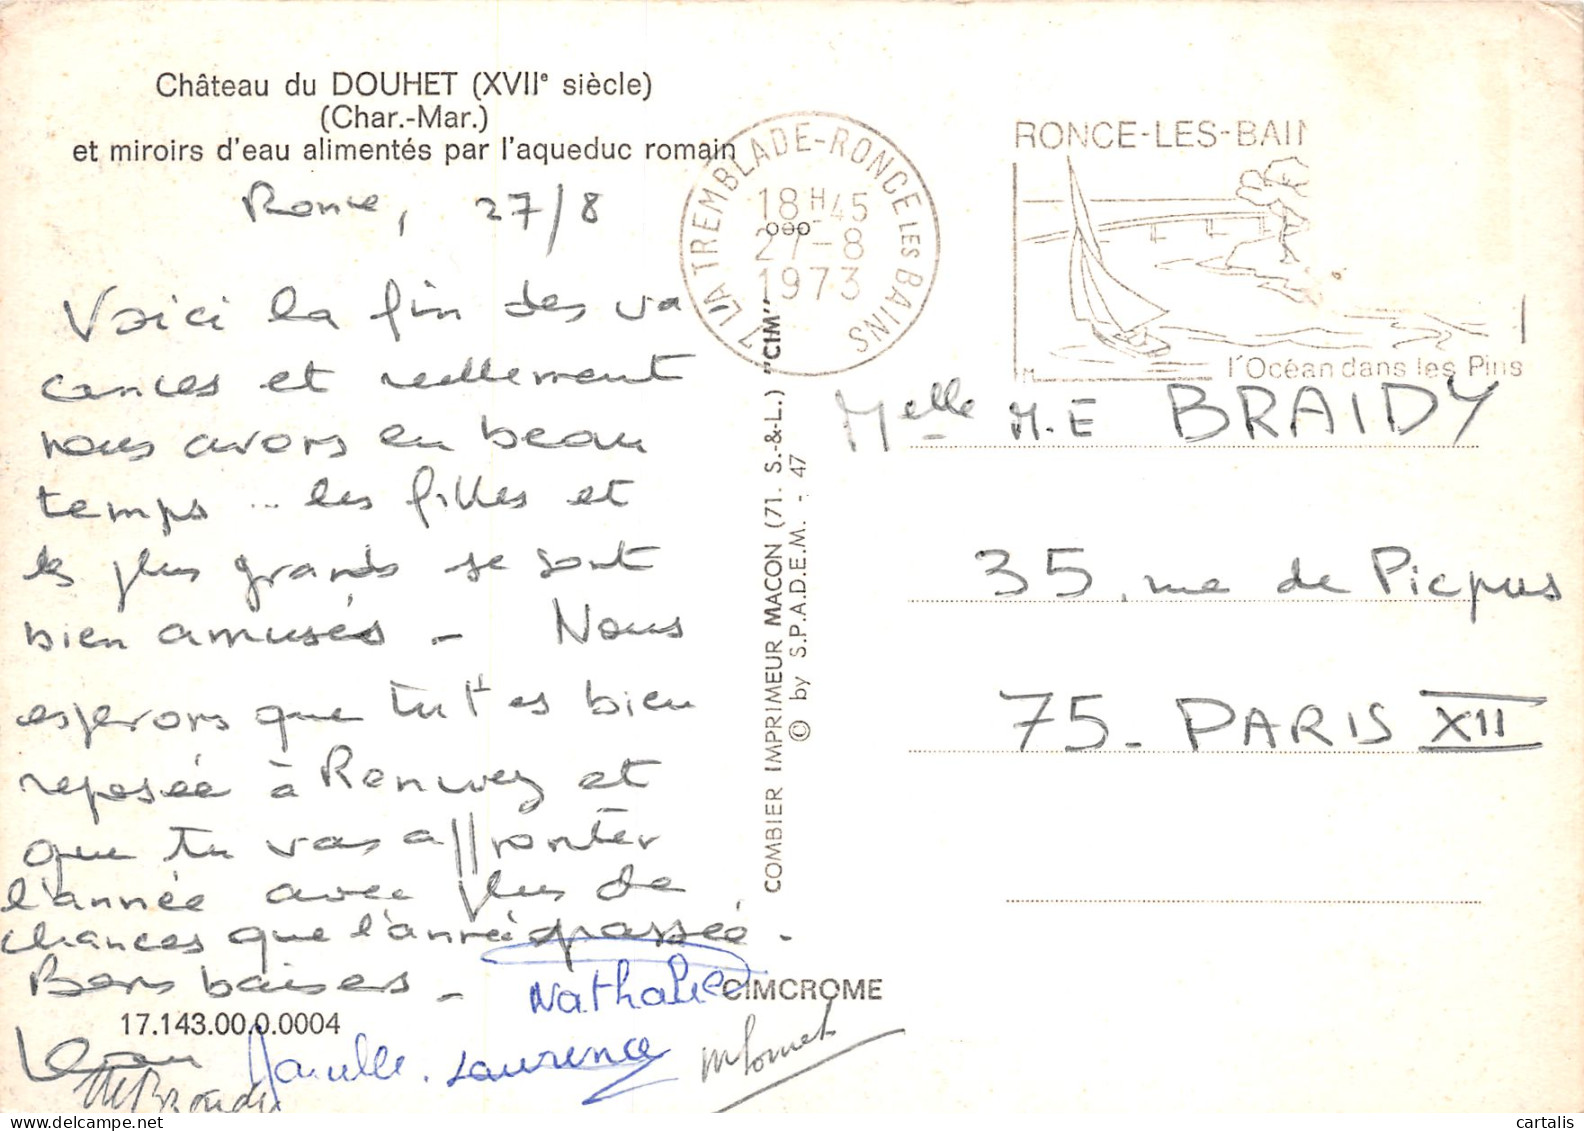 Château du DOUHET (XVIIe siècle)
(Char.-Mar.)
et miroirs d'eau alimentés par l'aqueduc romain
Ronce, 27/8
Voici la fin des va
cances et reellement
nous avons eu beau
temps .. les filles et
les plus grands se sont
bien amusés - Nous
esperons que tu t'es bien
reposée à et
que tu vas affronter
l'année avec plus de
chances que l'année passée.
Bons baisers -
Nathalie
Laurence
17.143.00.0.0004
CIMCROME
17 LA TREMBLADE-RONCE LES BAINS
18H45
27-8
1973
RONCE-LES-BAIN
l'Océan dans les Pins
COMBIER IMPRIMEUR MACON (71. S.-&-L.) "CIM"
© by S.P.A.D.E.M. - 47
Melle M.E BRAIDY
35, rue de Picpus
75 - PARIS XII
cartalis